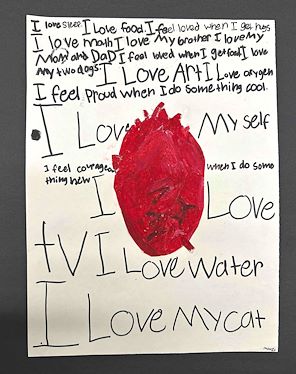 I love sleep. I Love food I feel loved when I get hugs
I love math I love My brother I love My
Mom and DaD I feel loved when I get food I love
My two dogs. I Love Art I Love oxygen
I feel Proud when I do Something cool.
I Love My self
I feel courage when I do Some
thing new
I Love
tv I Love Water
I Love My cat